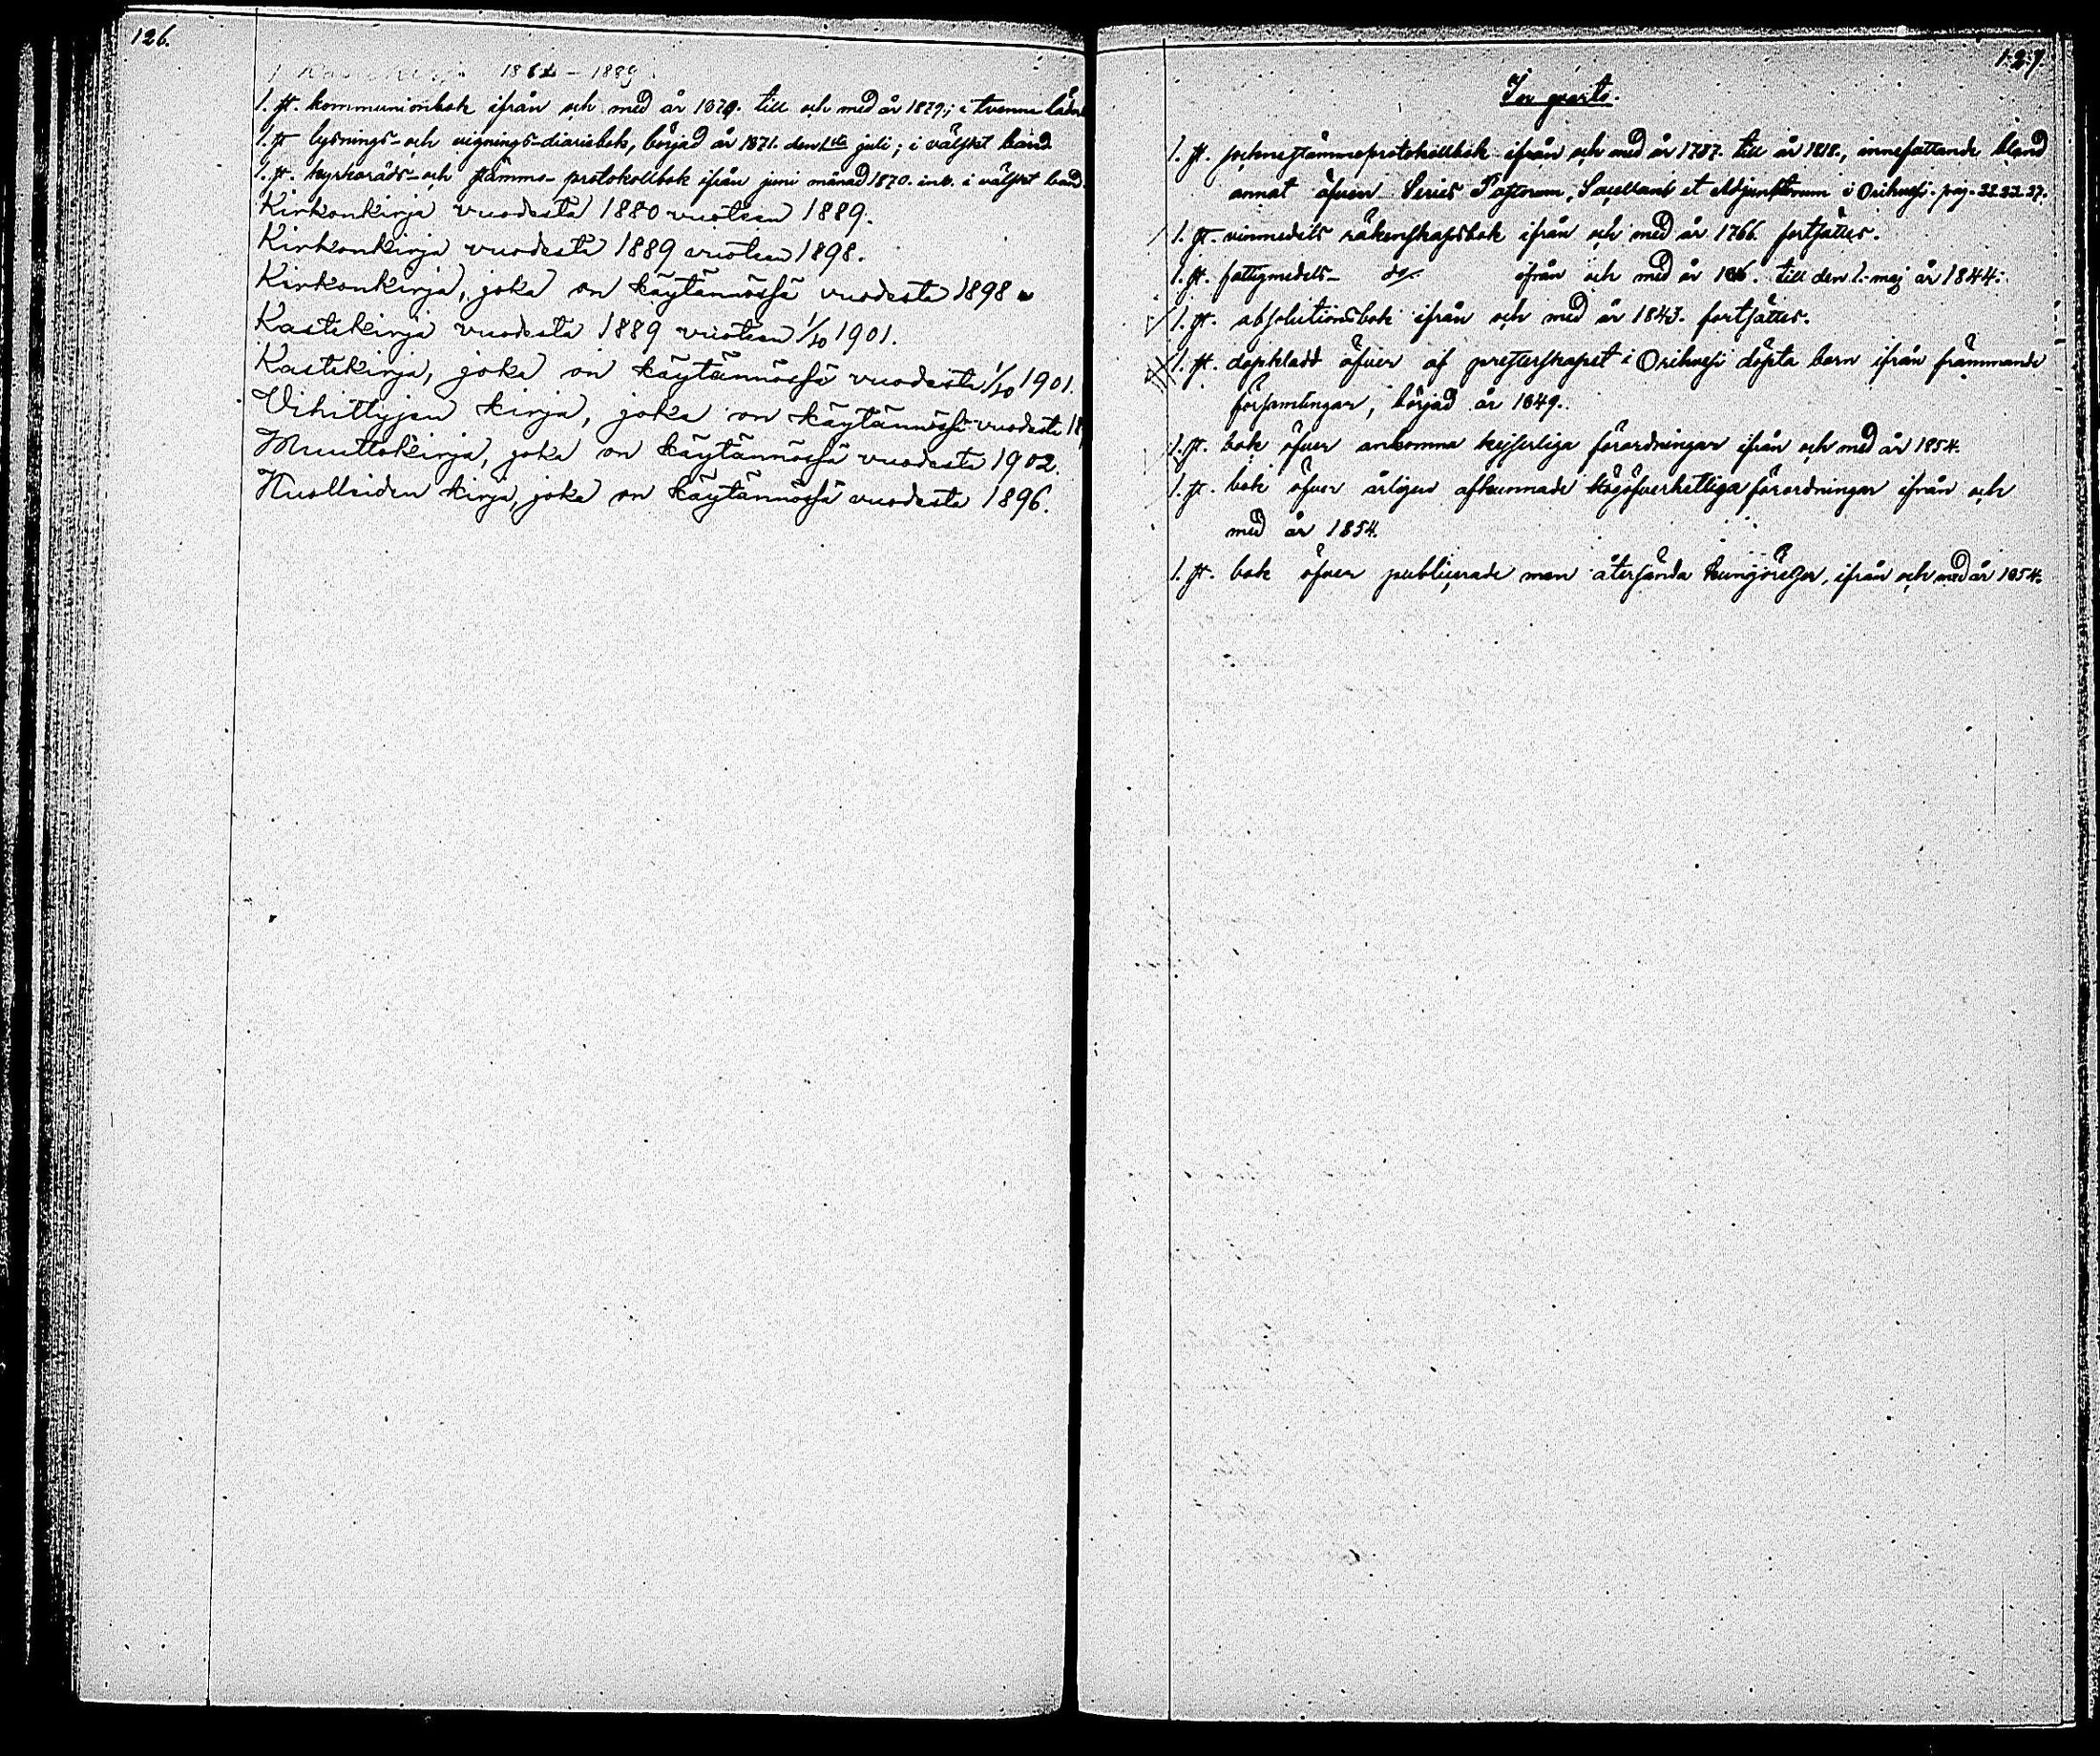 126.
1 Kastekirja 1862 – 1889
1. st. kommunionbok ifrån och med år 1870. till och med år 1879.; i tvenne läder
1. st lysnings- och vignings-diariebok, börjad år 1871. den 1sta juli; i välskt band
1. st. kyrkoråds- och stämmo- protokollbok ifrån juni månad 1870. inb. i välskt band.
Kirkonkirja vuodesta 1880 vuoteen 1889.
Kirkonkirja vuodesta 1889 vuoteen 1898.
Kirkonkirja, joka on käytännössä vuodesta 1898
Kastekirja vuodesta 1889 vuoteen 1/10 1901.
Kastekirja, joka on käytännössä vuodesta 1/10 1901.
Vihittyjen kirja, joka on käytännössä vuodesta 18
Muuttokirja, joka on käytännössä vuodesta 1902.
Kuolleiden kirja, joka on käytännössä vuodesta 1896.
127.
In quarto.
1. st. socknestämmoprotokollbok ifrån och med år 1787. till år 1818., innefattande bland
annat äfven Series Pastorum, Sacellani et Adjunctorum i Orihvesi. pag. 32.33.37.
1. st. vinmedels räkenskapsbok ifrån och med år 1766. fortsättes.
1. st. fattigmedels- do ifrån och med år till den 1. maj år 1844.
1. st. absolutionsbok ifrån och med år 1843. fortsättes.
1. st. dopkladd öfver af presterskapet i Orihvesi döpta barn ifrån främmande
församlingar, börjad år 1849.
1. st. bok öfver ankomna kejserliga förordningar ifrån och med år 1854.
1. st. bok öfver årligen afkunnade högöfverhetliga förordningar ifrån och
med år 1854.
1. st. bok öfver publicerade men återsända kungörelser, ifrån och med år 1854.